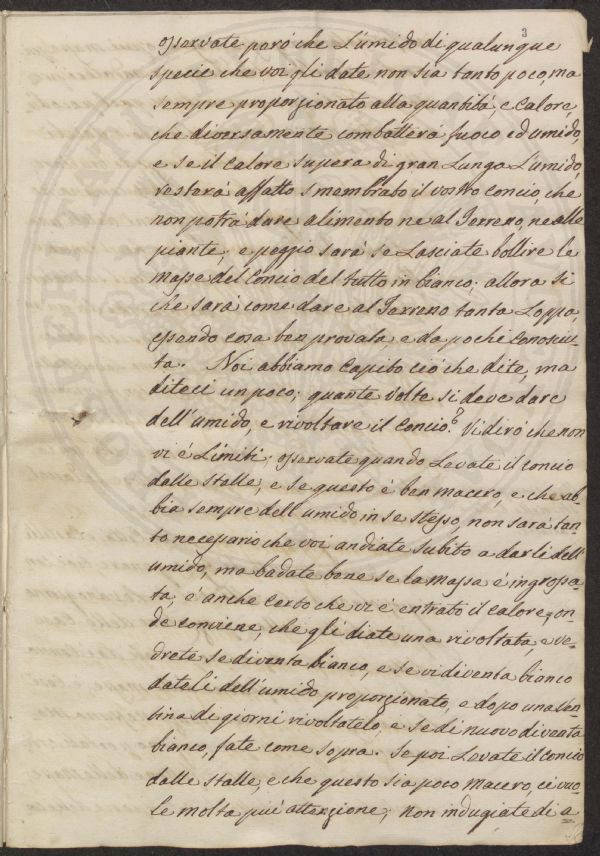 3
osservate paró che L'umido di qualunque
specie che voi gli date non sia tanto poco, ma
sempre proporzionato alla quantitá, e Calore,
che diversamente combatterá fuoco ed umido,
e se il Calore supera di gran Lunga L'umido,
resterá affatto smembrato il vostro Concio, che
non potrá dare alimento ne al Terreno, ne alle
piante, e peggio sará se Lasciate bollire le
masse del Concio del tutto in bianco; allora si
che sará come dare al Terreno tanta Loppa,
essendo cosa ben provata e da pochi Conosciu-
ta. Noi abbiamo Capito ció che dite, ma
diteci un poco; quante Volte si deve dare
dell'umido, e rivoltare il Concio? Vi diró che non
vi é Limiti; osservate quando Levate il Concio
dalle stalle, e se questo é ben macero, e che ab-
bia sempre dell'umido in se stesso, non sará tan-
to necessario che voi andiate subito a darli dell'
umido, ma badate bene se la massa é ingrossa-
ta, é anche Certo che vi é entrato il Calore, on-
de conviene, che gli diate una rivoltata, e ve-
drete se diventa bianco, e se vi diventa bianco
dateli dell'umido proporzionato, e dopo una Cen-
tina di giorni rivoltatelo, e se di nuovo diventa
bianco, fate come sopra. Se poi Levate il Concio
dalle stalle, e che questo sia poco macero, ci vuo-
le molta piú attenzione; non indugiate di a-